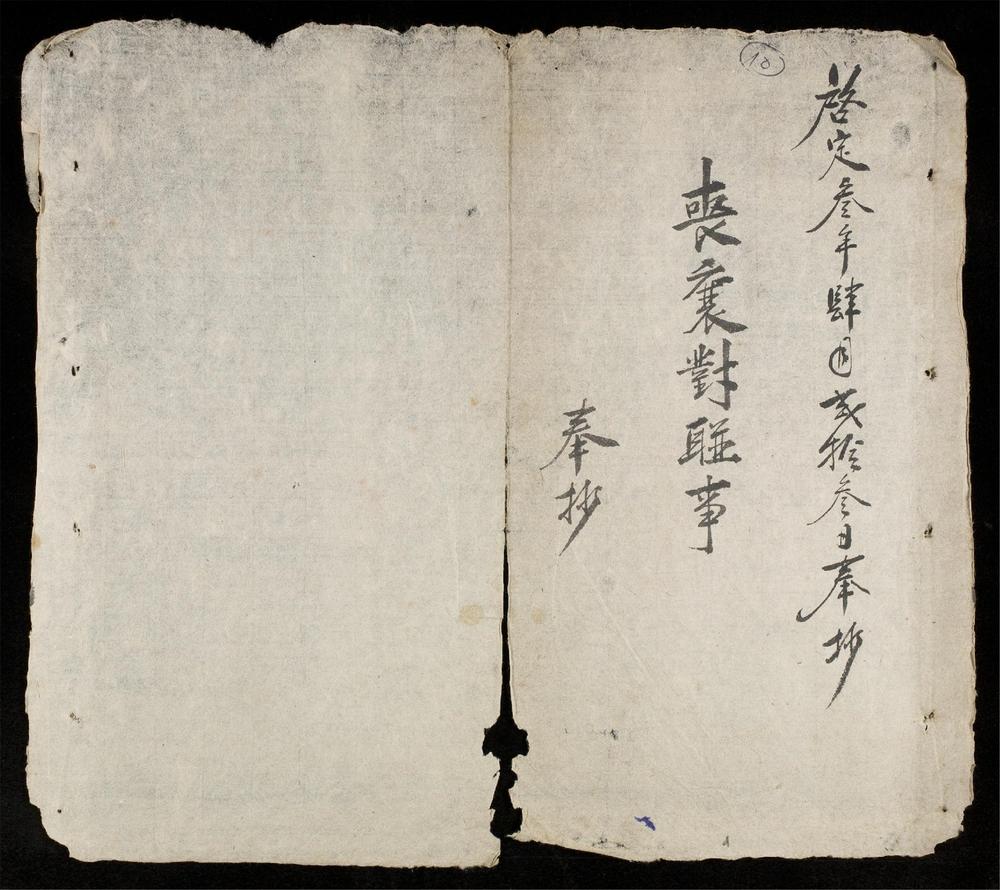 啓定叄年肆月弍拾叄日奉抄
喪襄對聯事
奉抄